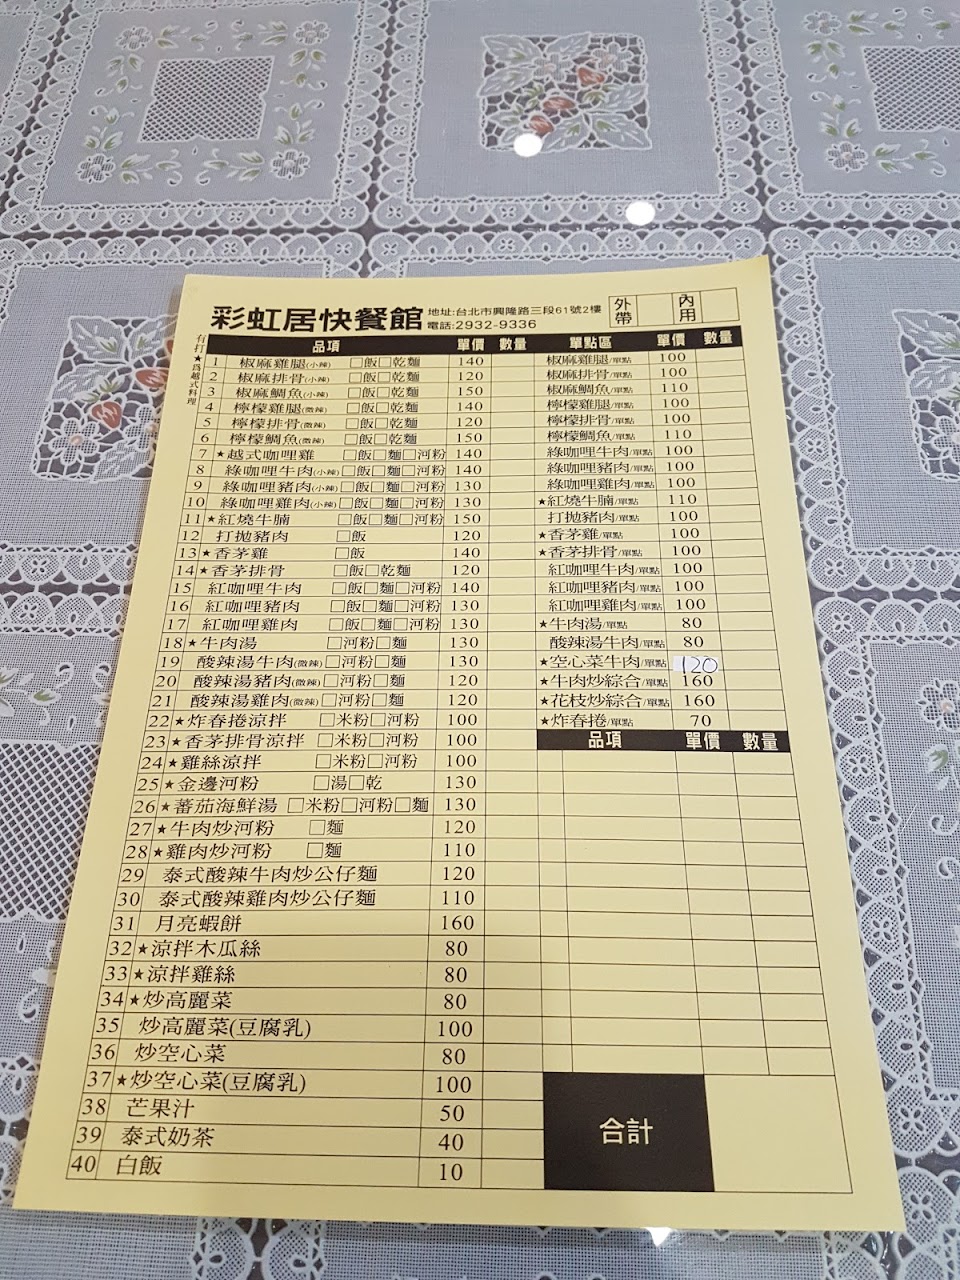 彩虹居快餐館 地址:台北市興隆路三段61號2樓 電話:2932-9336
外帶 內用
有打★為越式料理
品項 單價 數量
1 椒麻雞腿(小辣) □飯□乾麵 140
2 椒麻排骨(小辣) □飯□乾麵 120
3 椒麻鯛魚(小辣) □飯□乾麵 150
4 檸檬雞腿(微辣) □飯□乾麵 140
5 檸檬排骨(微辣) □飯□乾麵 120
6 檸檬鯛魚(微辣) □飯□乾麵 150
7 ★越式咖哩雞 □飯□麵□河粉 140
8 綠咖哩牛肉(小辣) □飯□麵□河粉 140
9 綠咖哩豬肉(小辣) □飯□麵□河粉 130
10 綠咖哩雞肉(小辣) □飯□麵□河粉 130
11 ★紅燒牛腩 □飯□麵□河粉 150
12 打拋豬肉 □飯 120
13 ★香茅雞 □飯 140
14 ★香茅排骨 □飯□乾麵 120
15 紅咖哩牛肉 □飯□麵□河粉 140
16 紅咖哩豬肉 □飯□麵□河粉 130
17 紅咖哩雞肉 □飯□麵□河粉 130
18 ★牛肉湯 □河粉□麵 130
19 酸辣湯牛肉(微辣) □河粉□麵 130
20 酸辣湯豬肉(微辣) □河粉□麵 120
21 酸辣湯雞肉(微辣) □河粉□麵 120
22 ★炸春捲涼拌 □米粉□河粉 100
23 ★香茅排骨涼拌 □米粉□河粉 100
24 ★雞絲涼拌 □米粉□河粉 100
25 ★金邊河粉 □湯□乾 130
26 ★蕃茄海鮮湯 □米粉□河粉□麵 130
27 ★牛肉炒河粉 □麵 120
28 ★雞肉炒河粉 □麵 110
29 泰式酸辣牛肉炒公仔麵 120
30 泰式酸辣雞肉炒公仔麵 110
31 月亮蝦餅 160
32 ★涼拌木瓜絲 80
33 ★涼拌雞絲 80
34 ★炒高麗菜 80
35 炒高麗菜(豆腐乳) 100
36 炒空心菜 80
37 ★炒空心菜(豆腐乳) 100
38 芒果汁 50
39 泰式奶茶 40
40 白飯 10
單點區 單價 數量
椒麻雞腿/單點 100
椒麻排骨/單點 100
椒麻鯛魚/單點 110
檸檬雞腿/單點 100
檸檬排骨/單點 100
檸檬鯛魚/單點 110
綠咖哩牛肉/單點 100
綠咖哩豬肉/單點 100
綠咖哩雞肉/單點 100
★紅燒牛腩/單點 110
打拋豬肉/單點 100
★香茅雞/單點 100
★香茅排骨/單點 100
紅咖哩牛肉/單點 100
紅咖哩豬肉/單點 100
紅咖哩雞肉/單點 100
★牛肉湯/單點 80
酸辣湯牛肉/單點 80
★空心菜牛肉/單點 120
★牛肉炒綜合/單點 160
★花枝炒綜合/單點 160
★炸春捲/單點 70
品項 單價 數量
合計